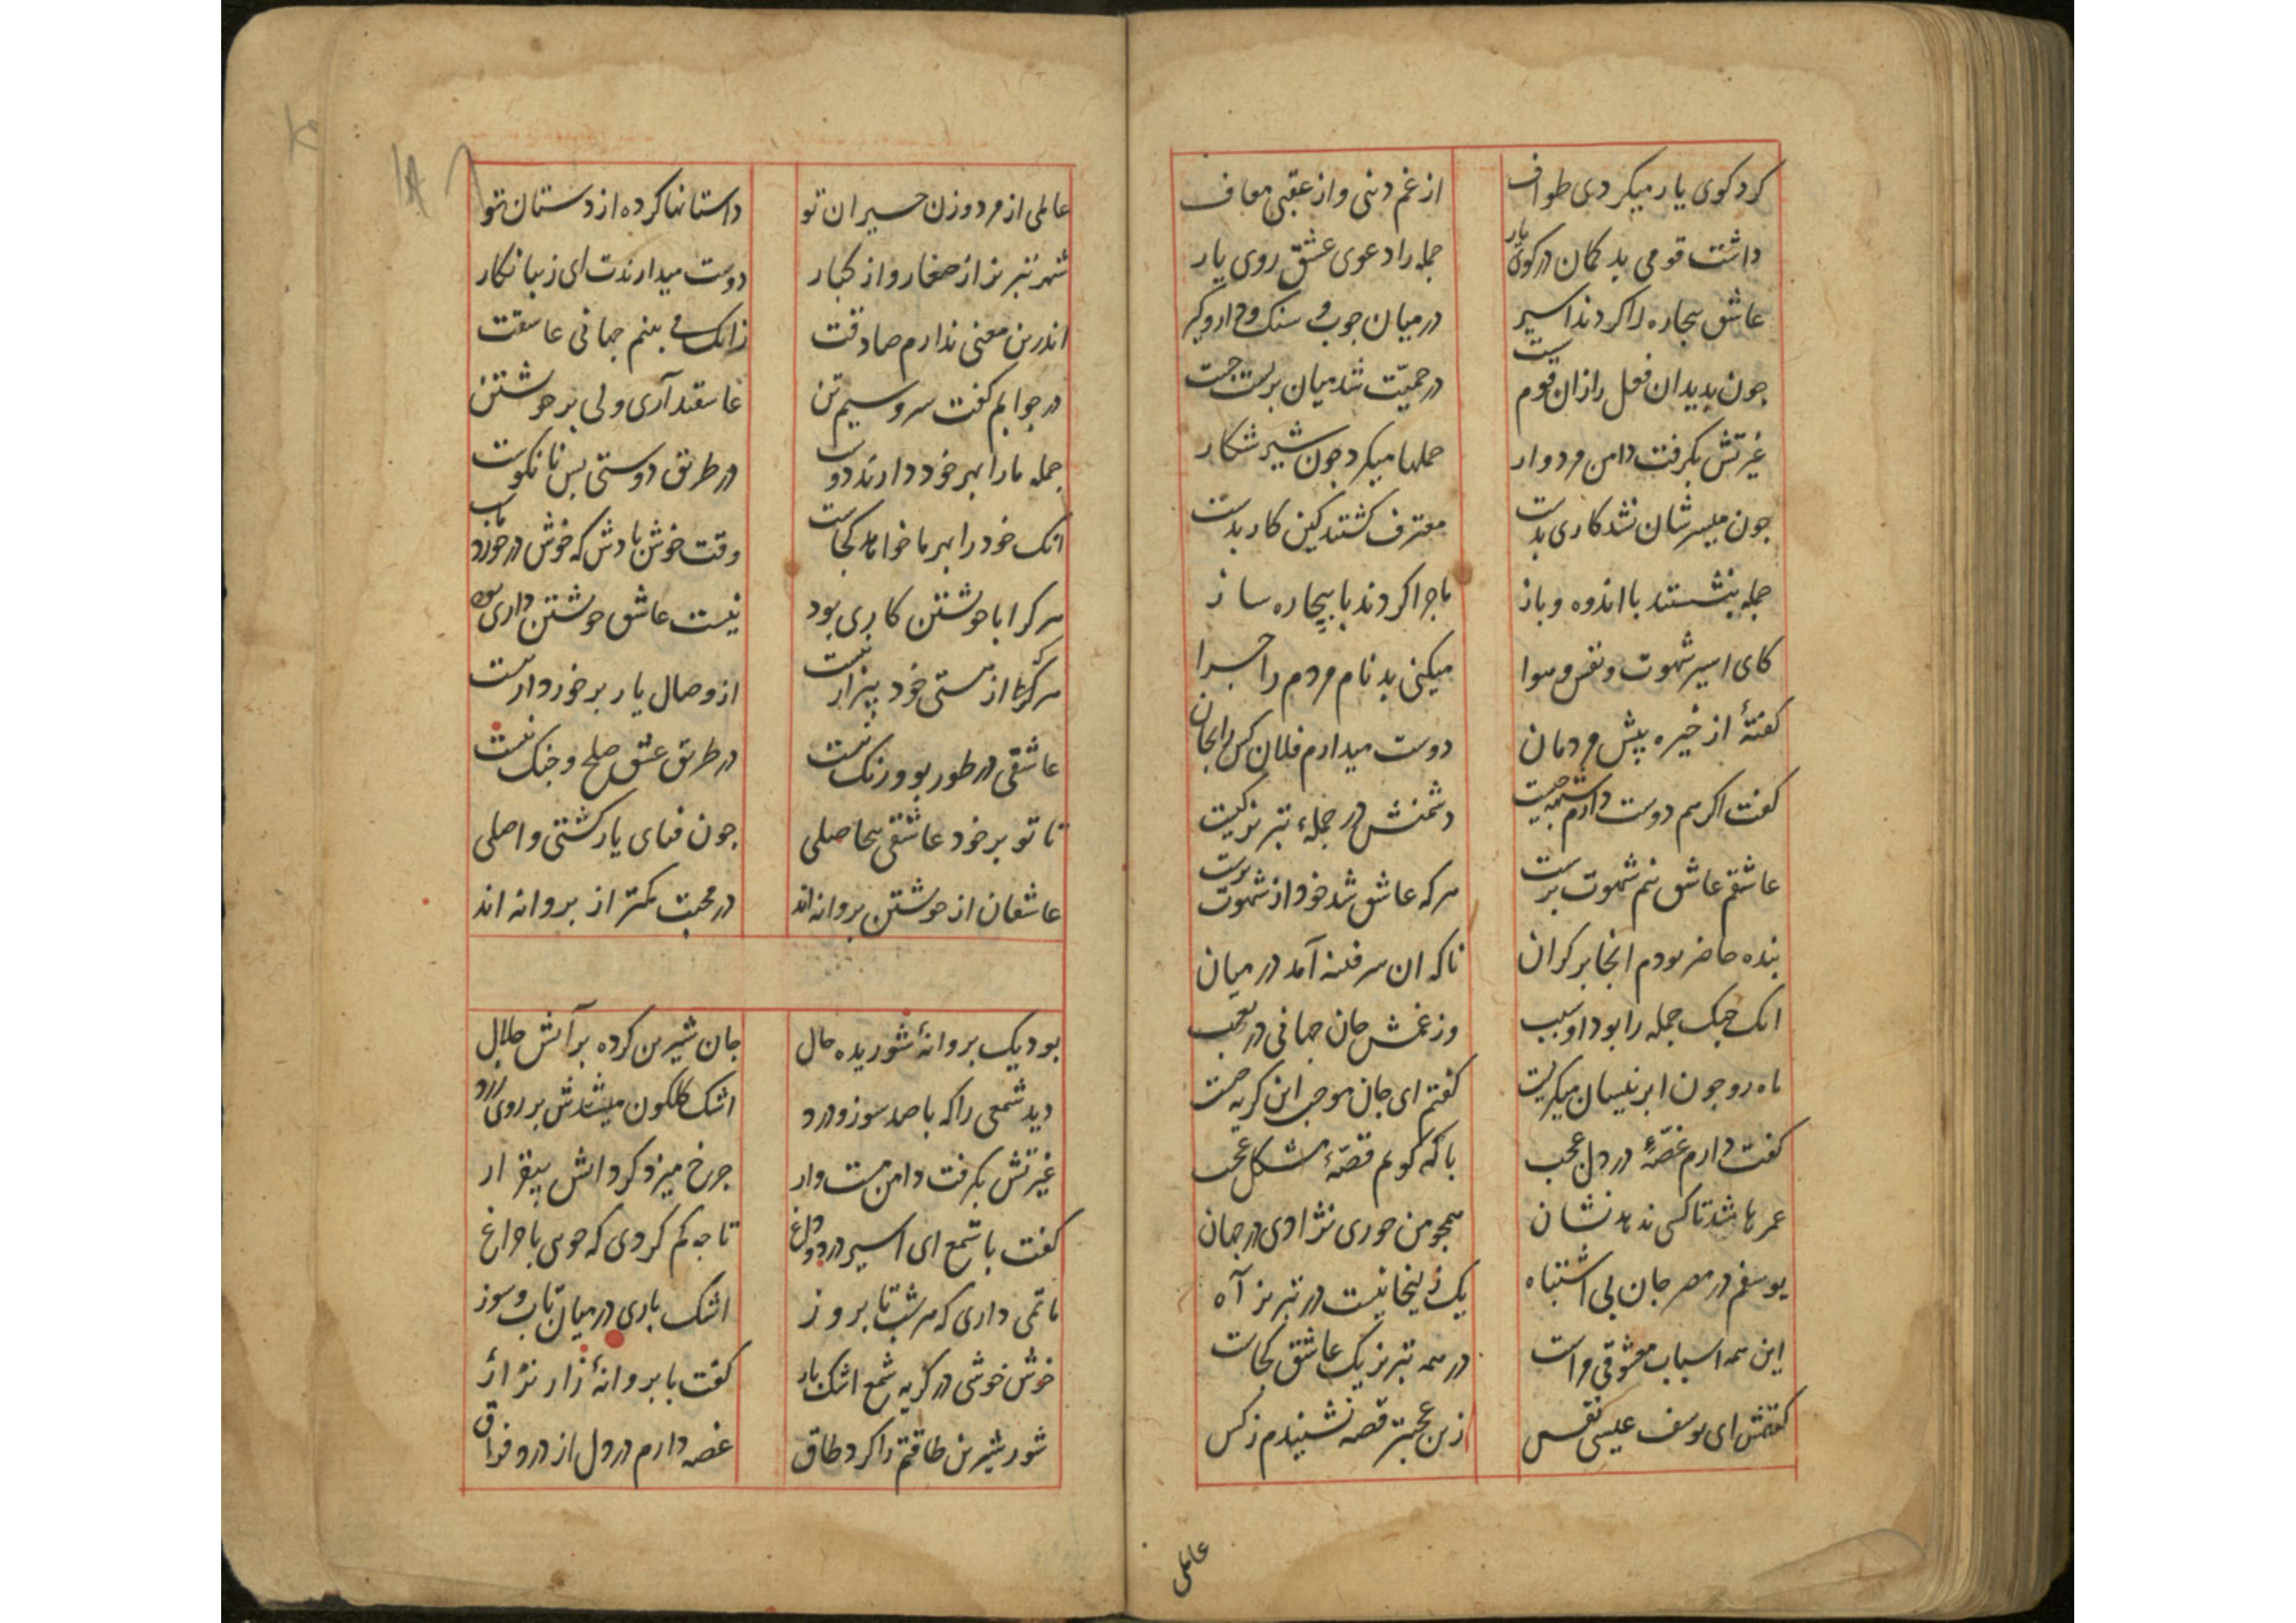 کرد کوی یار میکردی طواف از غم دنی و از عقبی معاف
داشت قومی بد کمان در کوی یار جمله را دعوی عشق روی یار
عاشق بیجاره را کردند اسیر در میان جوب و سنک و دار و کیر
جون بدید ان فعل را زان قوم ست در حمیّت شد میان بربست جست
غیرتش بکرفت دامن مردوار حملها میکرد جون شیر شکار
جون میسرشان نشد کاری بدست معترف کشتند کین کار بدست
جمله بنشستند با اندوه و باز ماجرا کردند با بیچاره ساز
کای اسیر شهوت و نفس و هوا میکنی بدنام مردم را جرا
کفتهٔ از خیره پیش مردمان دوست میدارم فلان کس را بجان
کفت اکر هم دوست دارم شبهه جیست دشمنش در جملهء تبریز کیست
عاشقم عاشق نیم شهوت برست هرکه عاشق شد خود از شهوت برست
بنده حاضر بودم انجا بر کران ناکه ان سر فتنه آمد در میان
انک جنک جمله را بود او سبب وز غمش جان جهانی در تعب
ماه رو جون ابر نیسان میکریست کفتم ای جان موجب این کریه جیست
کفت دارم غصّهٔ در دل عجب با که کویم قصّهٔ مشکل عجب
عمرها شد تا کسی ندهد نشان همجو من حوری نژادی در جهان
یوسفم در مصر جان بی اشتباه یک زلیخا نیست در تبریز آه
این همه اسباب معشوقی مراست در همه تبریز یک عاشق کجاست
کفتمش ای یوسف عیسی نفس زین عجبتر قصه نشنیدم ز کس
عاملی
عاملی از مرد و زن حیران تو داستانها کرده از دستان تو
شهر تبریز از صغار و از کبار دوست میدارندت ای زیبا نکار
اندرین معنی ندارم صادقت زانک می بینم جهانی عاشقت
در جوابم کفت سرو سیم تن عاشقند آری ولی بر خویشتن
جمله ما را بهر خود دارند دوست در طریق دوستی بس نانکوست
انک خود را بهر ما خواهد کجاست وقت خوش بادش که خوش در خورد ماست
هر کرا با خویشتن کاری بود نیست عاشق خویشتن داری بود
هرکه از هستی خود بیزار نیست از وصال یار برخوردار نیست
عاشقی در طور بو و رنک نیست در طریق عشق صلح و جنک نیست
تا تو بر خود عاشقی بیحاصلی جون فنای یار کشتی واصلی
عاشقان از خویشتن بروانه اند در محبت کمتر از بروانه اند
بود یک بروانهٔ شوریده حال جان شیرین کرده بر آتش حلال
دید شمعی را که با صد سوز و درد اشک کلکون میشدش بر روی زرد
غیرتش بکرفت دامن مست وار جرخ میزد کرد انش بیقرار
کفت با شمع ای اسیر درد و داغ تا جه کم کردی که جویی با جراغ
ماتمی داری که هر شب تا بروز اشک باری در میان تاب و سوز
خوش خوشی در کریه شمع اشک بار کفت با بروانهٔ زار نزار
شور شیرین طاقتم را کرد طاق غصه دارم در دل از درد فراق